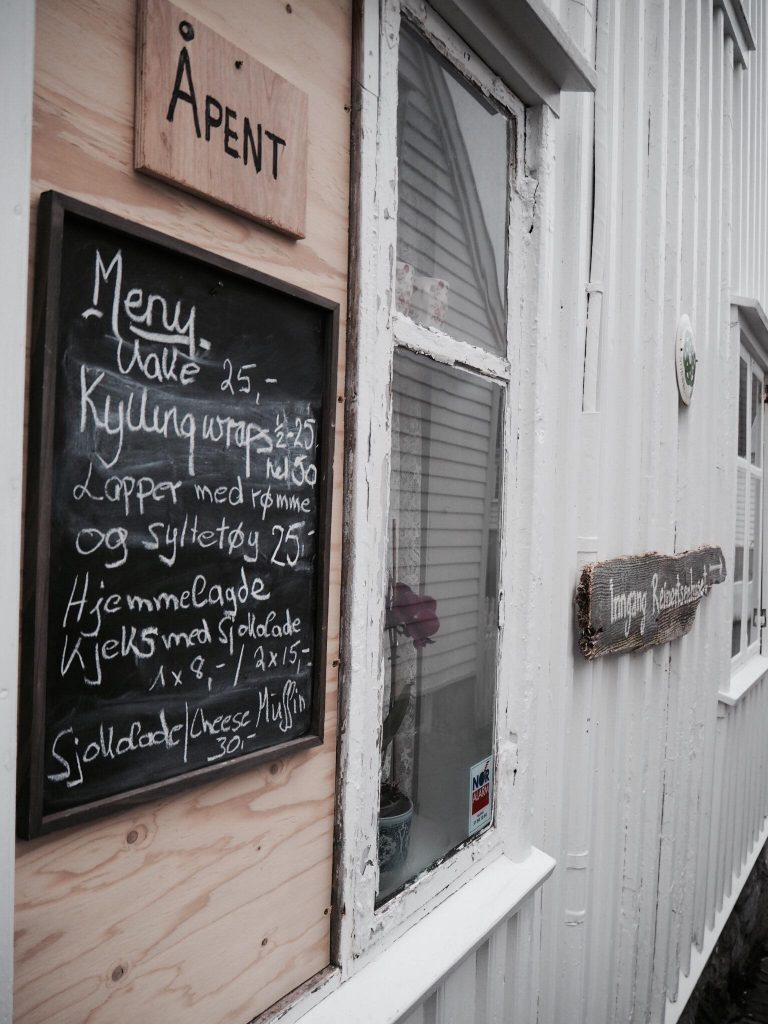 ÅPENT
Meny
Vaffle 25,-
Kyllingwraps ½-25
hel 50
Lapper med rømme
og syltetøy 25,-
Hjemmelagde
Kjeks med Sjokolade
1x8,-/2x15,-
Sjokolade/Cheese Muffin
30,-
NOR
ALARM
Inngang